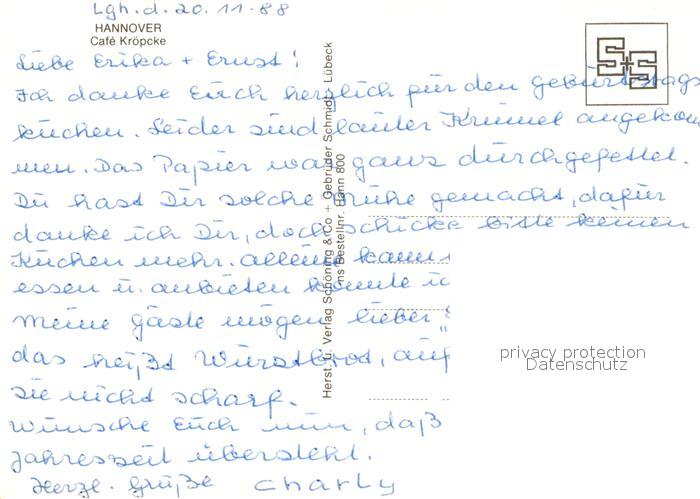 Lgh. d. 20.11.88
HANNOVER
Café Kröpcke
S+S
Liebe Erika + Ernst!
Ich danke Euch herzlich für den Geburtstags
kuchen. Leider sind lauter Krümel angekom
men. Das Papier war ganz durchgefettet.
Du hast Dir solche Mühe gemacht, dafür
danke ich Dir, doch schicke bitte keinen
Kuchen mehr. Allein kann
essen u. anbieten konnte ic
meine Gäste mögen lieber
das heißt Wurstbrot, auf
sie nicht scharf.
Wünsche Euch nun, daß
Jahreszeit übersteht.
Herzl. Grüße Charly
Herst. u. Verlag Schöning & Co + Gebrüder Schmidt, Lübeck
Bestellnr. Hann 800
privacy protection
Datenschutz